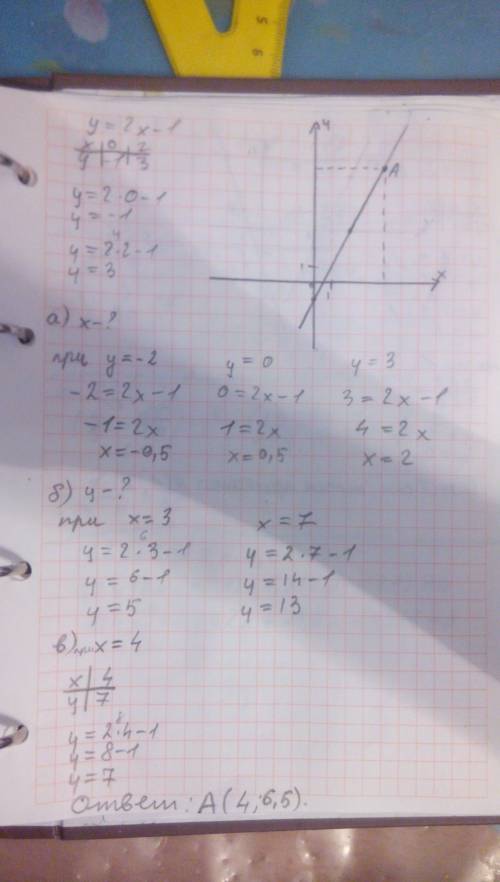 y = 2x - 1
x | 0 | 2
y | -1 | 3
y = 2·0 - 1
y = -1
4
y = 2·2 - 1
y = 3
y
A
x
1
1
а) x - ?
при y = -2 y = 0 y = 3
-2 = 2x - 1 0 = 2x - 1 3 = 2x - 1
-1 = 2x 1 = 2x 4 = 2x
x = -0,5 x = 0,5 x = 2
б) y - ?
при x = 3 x = 7
6
y = 2·3 - 1 y = 2·7 - 1
y = 6 - 1 y = 14 - 1
y = 5 y = 13
в) при x = 4
x | 4
y | 7
8
y = 2·4 - 1
y = 8 - 1
y = 7
Ответ: A(4; 6,5).